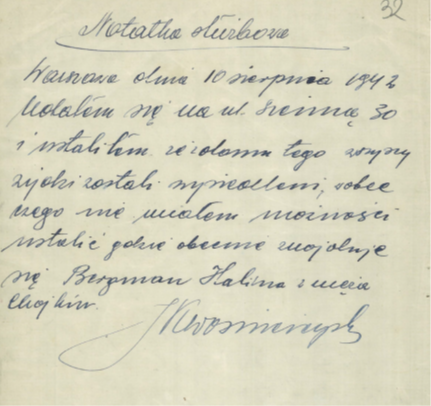 32
Notatka służbowa
Warszawa dnia 10 sierpnia 1942
Udałem się na ul. Sienną 30
i ustaliłem że z domu tego wszyscy
żydzi zostali wysiedleni, wobec
czego nie miałem możności
ustalić gdzie obecnie znajduje
się Bergman Halina z męża
Chojków.